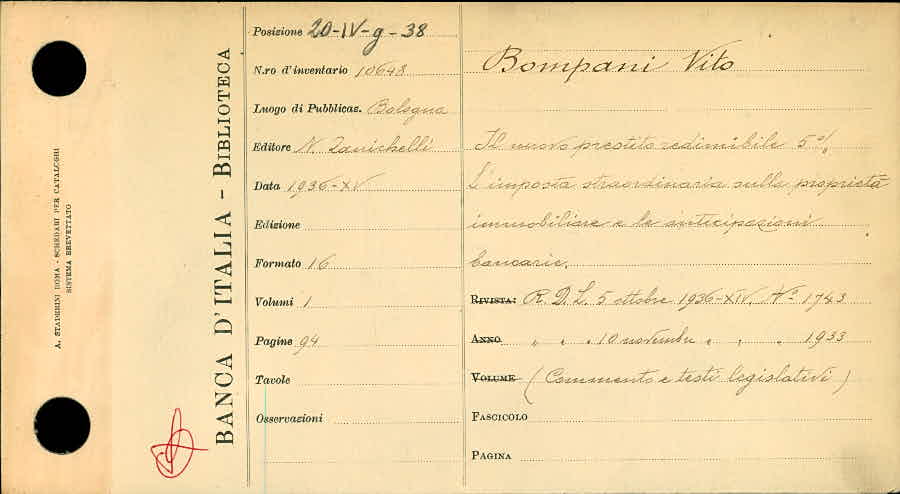 A. STADERINI ROMA - SCHEDARI PER CATALOGHI
SISTEMA BREVETTATO
BANCA D'ITALIA - BIBLIOTECA
Posizione 20-IV-g-38
N.ro d'inventario 10648
Luogo di Pubblicaz. Bologna
Editore N. Zanichelli
Data 1936-XV
Edizione
Formato 16
Volumi 1
Pagine 94
Tavole
Osservazioni
Bompani Vito
Il nuovo prestito redimibile 5%
L'imposta straordinaria sulla proprietà
immobiliare e le anticipazioni
bancarie.
RIVISTA: R. D. L. 5 ottobre 1936-XIV, No 1743
ANNO " " " 10 novembre " " " 1933
VOLUME (Commento e testi legislativi)
FASCICOLO
PAGINA